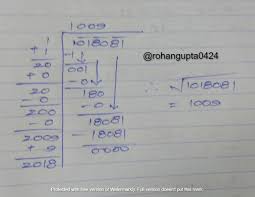 1009
1 | 1018081
+1 | -1
20 | 001
+0 | -0
20 | 180
-0 | -0
200 | 18081
-0 | -18081
2009 | 0000
+9
2018
@rohangupta0424
∴ √1018081
= 1009
Protected with free version of Watermarkly. Full version doesn't put this mark.